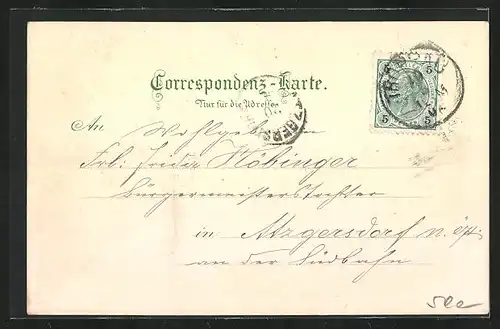 Correspondenz-Karte.
Nur für die Adresse.
5 5
5
An Wohlgeboren
Frl. Frieda Köbinger
Bürgermeisterstochter
in Atzgersdorf n. Öst.
an der Südbahn